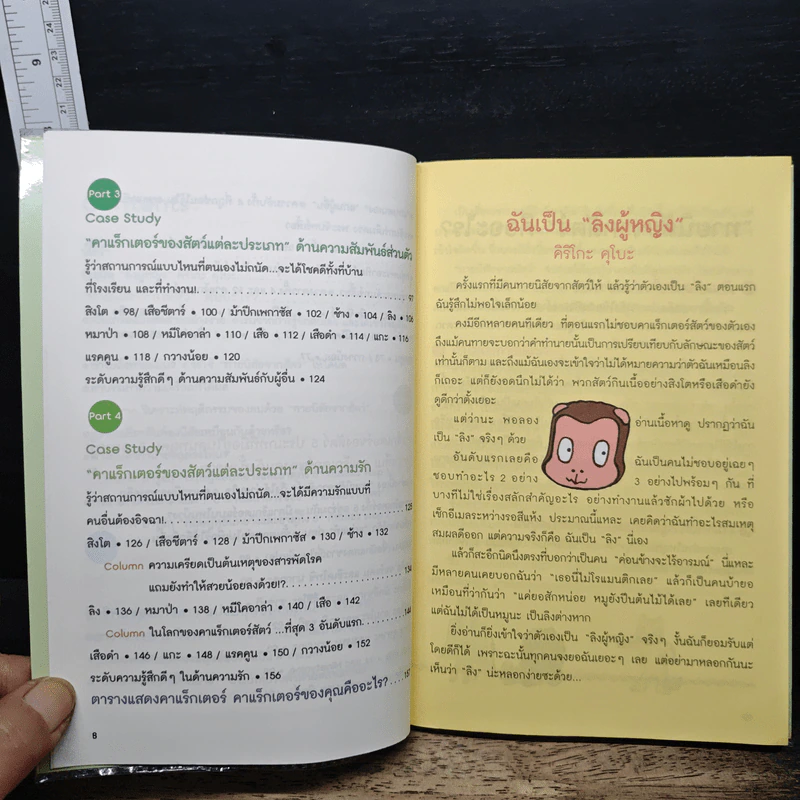 Part 3
Case Study
"คาแร็กเตอร์ของสัตว์แต่ละประเภท" ด้านความสัมพันธ์ส่วนตัว
รู้ว่าสถานการณ์แบบไหนที่ตนเองไม่ถนัด...จะได้โชคดีทั้งที่บ้าน
ที่โรงเรียน และที่ทำงาน!. 97
สิงโต • 98/ เสือชีตาร์ • 100 / ม้าปีกเพกาซัส • 102 / ช้าง • 104 / ลิง • 106
หมาป่า • 108 / หมีโคอาล่า • 110 / เสือ • 112 / เสือดำ • 114 / แกะ • 116
แรคคูน • 118 / กวางน้อย • 120
ระดับความรู้สึกดีๆ ด้านความสัมพันธ์กับผู้อื่น • 124
Part 4
Case Study
"คาแร็กเตอร์ของสัตว์แต่ละประเภท" ด้านความรัก
รู้ว่าสถานการณ์แบบไหนที่ตนเองไม่ถนัด...จะได้มีความรักแบบที่
คนอื่นต้องอิจฉา!. 125
สิงโต • 126 / เสือชีตาร์ • 128 / ม้าปีกเพกาซัส • 130 / ช้าง • 132
Column ความเครียดเป็นต้นเหตุของสารพัดโรค
แถมยังทำให้สวยน้อยลงด้วย!?. 134
ลิง • 136 / หมาป่า • 138 / หมีโคอาล่า • 140 / เสือ • 142
Column ในโลกของคาแร็กเตอร์สัตว์ ...ที่สุด 3 อันดับแรก. 144
เสือดำ • 146 / แกะ • 148 / แรคคูน • 150 / กวางน้อย • 152
ระดับความรู้สึกดีๆ ในด้านความรัก • 156
ตารางแสดงคาแร็กเตอร์ คาแร็กเตอร์ของคุณคืออะไร? 157
8
ฉันเป็น "ลิงผู้หญิง"
คิริโกะ คุโบะ
ครั้งแรกที่มีคนทายนิสัยจากสัตว์ให้ แล้วรู้ว่าตัวเองเป็น "ลิง" ตอนแรก
ฉันรู้สึกไม่พอใจเล็กน้อย
คงมีอีกหลายคนทีเดียว ที่ตอนแรกไม่ชอบคาแร็กเตอร์สัตว์ของตัวเอง
ถึงแม้คนทายจะบอกว่าคำทำนายนั้นเป็นการเปรียบเทียบกับลักษณะของสัตว์
เท่านั้นก็ตาม และถึงแม้ฉันเองจะเข้าใจว่าไม่ได้หมายความว่าตัวฉันเหมือนลิง
ก็เถอะ แต่ก็ยังอดนึกไม่ได้ว่า พวกสัตว์กินเนื้ออย่างสิงโตหรือเสือดำยัง
ดูดีกว่าตั้งเยอะ
แต่ว่านะ พอลองอ่านเนื้อหาดู ปรากฏว่าฉัน
เป็น "ลิง" จริงๆ ด้วย
อันดับแรกเลยคือ ฉันเป็นคนไม่ชอบอยู่เฉยๆ
ชอบทำอะไร 2 อย่าง 3 อย่างไปพร้อมๆ กัน ที่
บางทีไม่ใช่เรื่องสลักสำคัญอะไร อย่างทำงานแล้วซักผ้าไปด้วย หรือ
เช็กอีเมลระหว่างรอสีแห้ง ประมาณนี้แหละ เคยคิดว่าฉันทำอะไรสมเหตุ
สมผลดีออก แต่ความจริงก็คือ ฉันเป็น "ลิง" นี่เอง
แล้วก็สะอึกนิดนึงตรงที่บอกว่าเป็นคน "ค่อนข้างจะไร้อารมณ์" นี่แหละ
มีหลายคนเคยบอกฉันว่า "เธอนี่ไม่โรแมนติกเลย" แล้วก็เป็นคนบ้ายอ
เหมือนที่ว่ากันว่า "แค่ยอสักหน่อย หมูยังปีนต้นไม้ได้เลย" เลยทีเดียว
แต่ฉันไม่ได้เป็นหมูนะ เป็นลิงต่างหาก
ยิ่งอ่านก็ยิ่งเข้าใจว่าตัวเองเป็น "ลิงผู้หญิง" จริงๆ งั้นฉันก็ยอมรับแต่
โดยดีก็ได้ เพราะฉะนั้นทุกคนจงยอฉันเยอะๆ เลย แต่อย่ามาหลอกกันนะ
เห็นว่า "ลิง" น่ะหลอกง่ายซะด้วย...